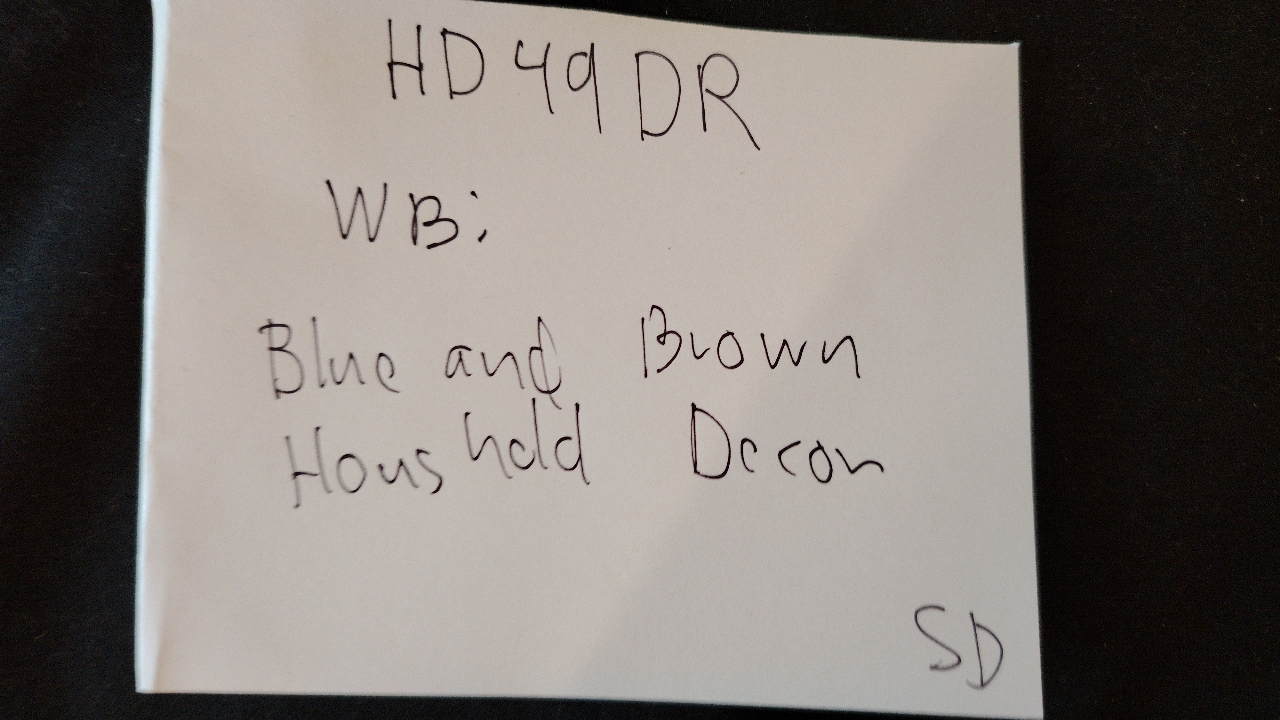 HD49DR
WB:
Blue and Brown
Houshold Decor
SD